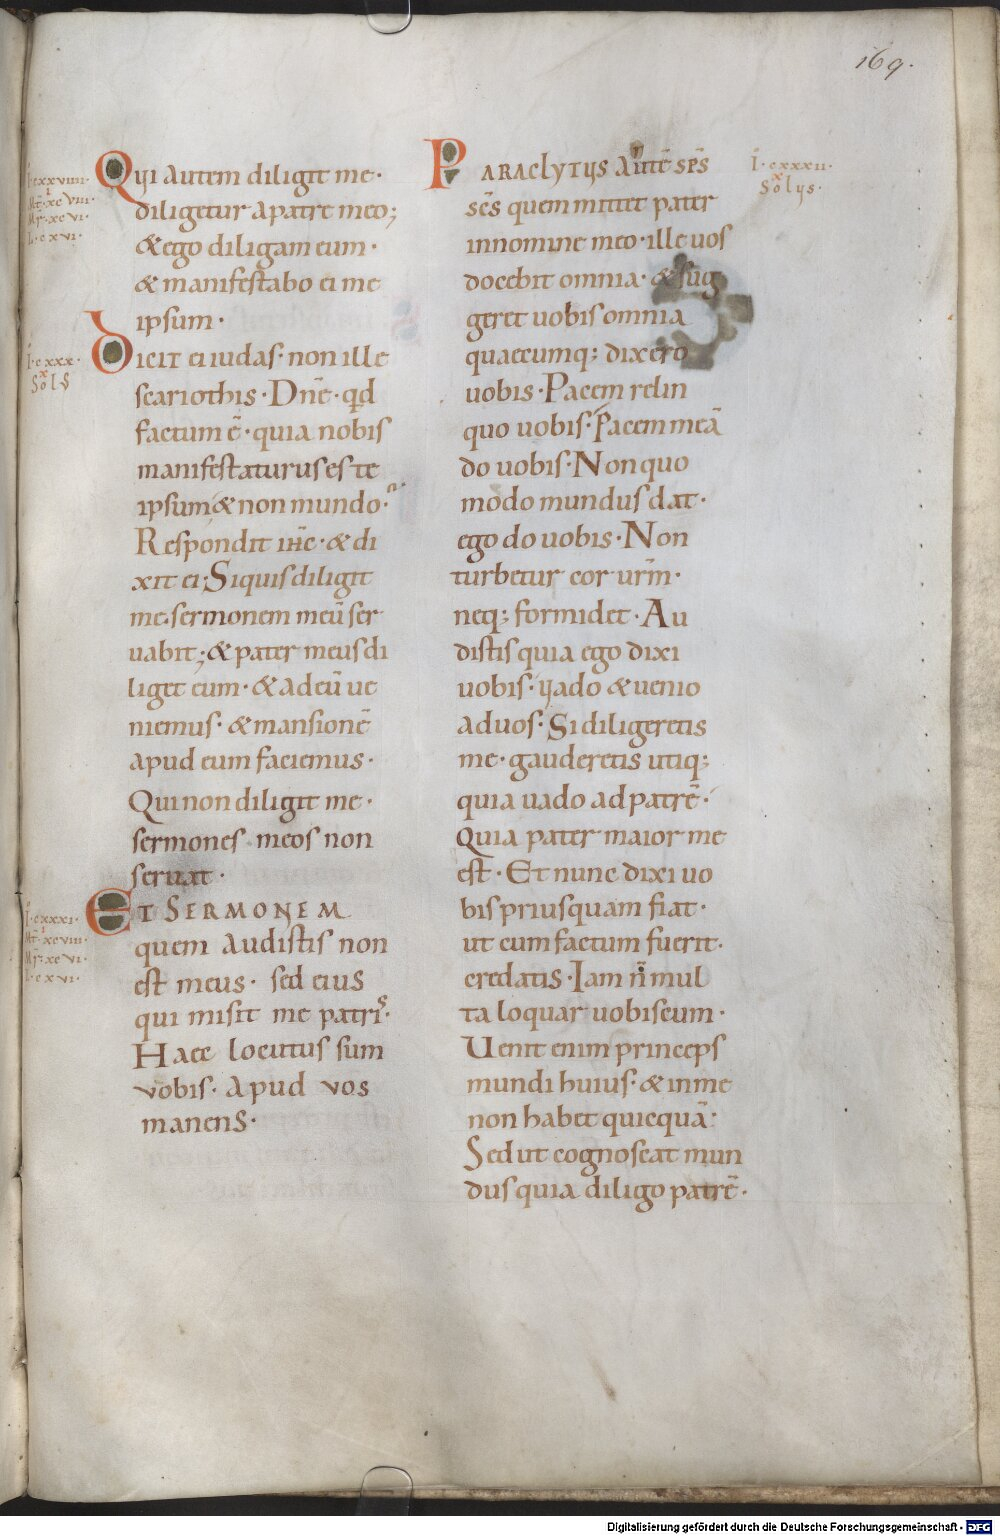 169.
I. cxxviiii.
i
Mt. xcviii.
Mr. xcvi.
L. cxvi.
Qui autem diligit me·
diligetur a patre meo;
& ego diligam eum·
& manifestabo ei me
ipsum·
I. cxxx.
x
Sol S
Dicit ei iudas· non ille
scariothis· Dnē· qđ
factum ē· quia nobis
manifestaturus es te
ipsum & non mundo·
Respondit ihc̄· & di
xit ei· Siquis diligit
me· sermonem meū ser
vabit; & pater meus di
liget eum· & ad eū ve
niemus· & mansionē
apud eum faciemus·
Qui non diligit me·
sermones meos non
servat·
I. cxxxi.
i
Mt. xcviii.
Mr. xcvi.
L. cxvi.
ET SERMONEM
quem audistis non
est meus· sed eius
qui misit me patris·
Haec locutus sum
vobis· apud vos
manens·
I. cxxxii.
x
Solus.
PARACLYTUS autē sp̄s
sc̄s quem mittet pater
in nomine meo· ille uos
docebit omnia· & sug
geret uobis omnia
quaecumq; dixero
uobis· Pacem relin
quo uobis· Pacem meā
do uobis· Non quo
modo mundus dat·
ego do uobis· Non
turbetur cor ur̄m·
neq; formidet· Au
distis quia ego dixi
uobis· uado & uenio
ad uos· Si diligeretis
me· gauderetis utiq;
quia uado ad patrē·
Quia pater maior me
est· Et nunc dixi uo
bis priusquam fiat·
ut cum factum fuerit·
credatis· Iam n̄ mul
ta loquar uobiscum·
Uenit enim princeps
mundi huius· & in me
non habet quicquā·
Sed ut cognoscat mun
dus quia diligo patrē·
Digitalisierung gefördert durch die Deutsche Forschungsgemeinschaft - DFG